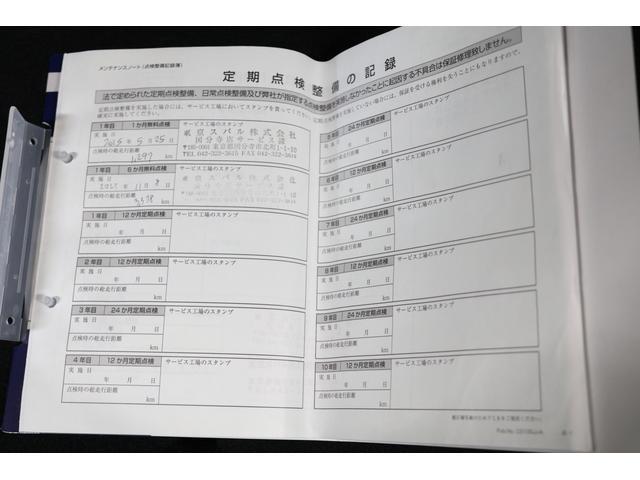 メンテナンスノート(点検整備記録簿)
定期点検整備の記録
法で定められた定期点検整備、日常点検整備及び弊社が指定する点検整備を実施しなかったことに起因する不具合は保証修理致しません。
定期点検整備を実施した場合には、サービス工場においてスタンプを貰ってください。
確実に実施してください。
1年目 1か月無料点検 サービス工場のスタンプ
実施日
年5月25日
点検時の総走行距離
km
東京スバル株式会社
国分寺店サービス課
〒185-0001 東京都国分寺市北町1-1-10
TEL.042-323-3615 FAX.042-322-3614
1年目 6か月無料点検 サービス工場のスタンプ
実施日
年11月8日
点検時の総走行距離
km
1年目 12か月定期点検 サービス工場のスタンプ
実施日
年 月 日
点検時の総走行距離
km
2年目 12か月定期点検 サービス工場のスタンプ
実施日
年 月 日
点検時の総走行距離
km
3年目 24か月定期点検 サービス工場のスタンプ
実施日
年 月 日
点検時の総走行距離
km
4年目 12か月定期点検 サービス工場のスタンプ
実施日
年 月 日
点検時の総走行距離
km
5年目 24か月定期点検 サービス工場のスタンプ
実施日
年 月 日
点検時の総走行距離
km
6年目 12か月定期点検 サービス工場のスタンプ
実施日
年 月 日
点検時の総走行距離
km
7年目 24か月定期点検 サービス工場のスタンプ
実施日
年 月 日
点検時の総走行距離
km
8年目 12か月定期点検 サービス工場のスタンプ
実施日
年 月 日
点検時の総走行距離
km
9年目 24か月定期点検 サービス工場のスタンプ
実施日
年 月 日
点検時の総走行距離
km
10年目 12か月定期点検 サービス工場のスタンプ
実施日
年 月 日
点検時の総走行距離
km